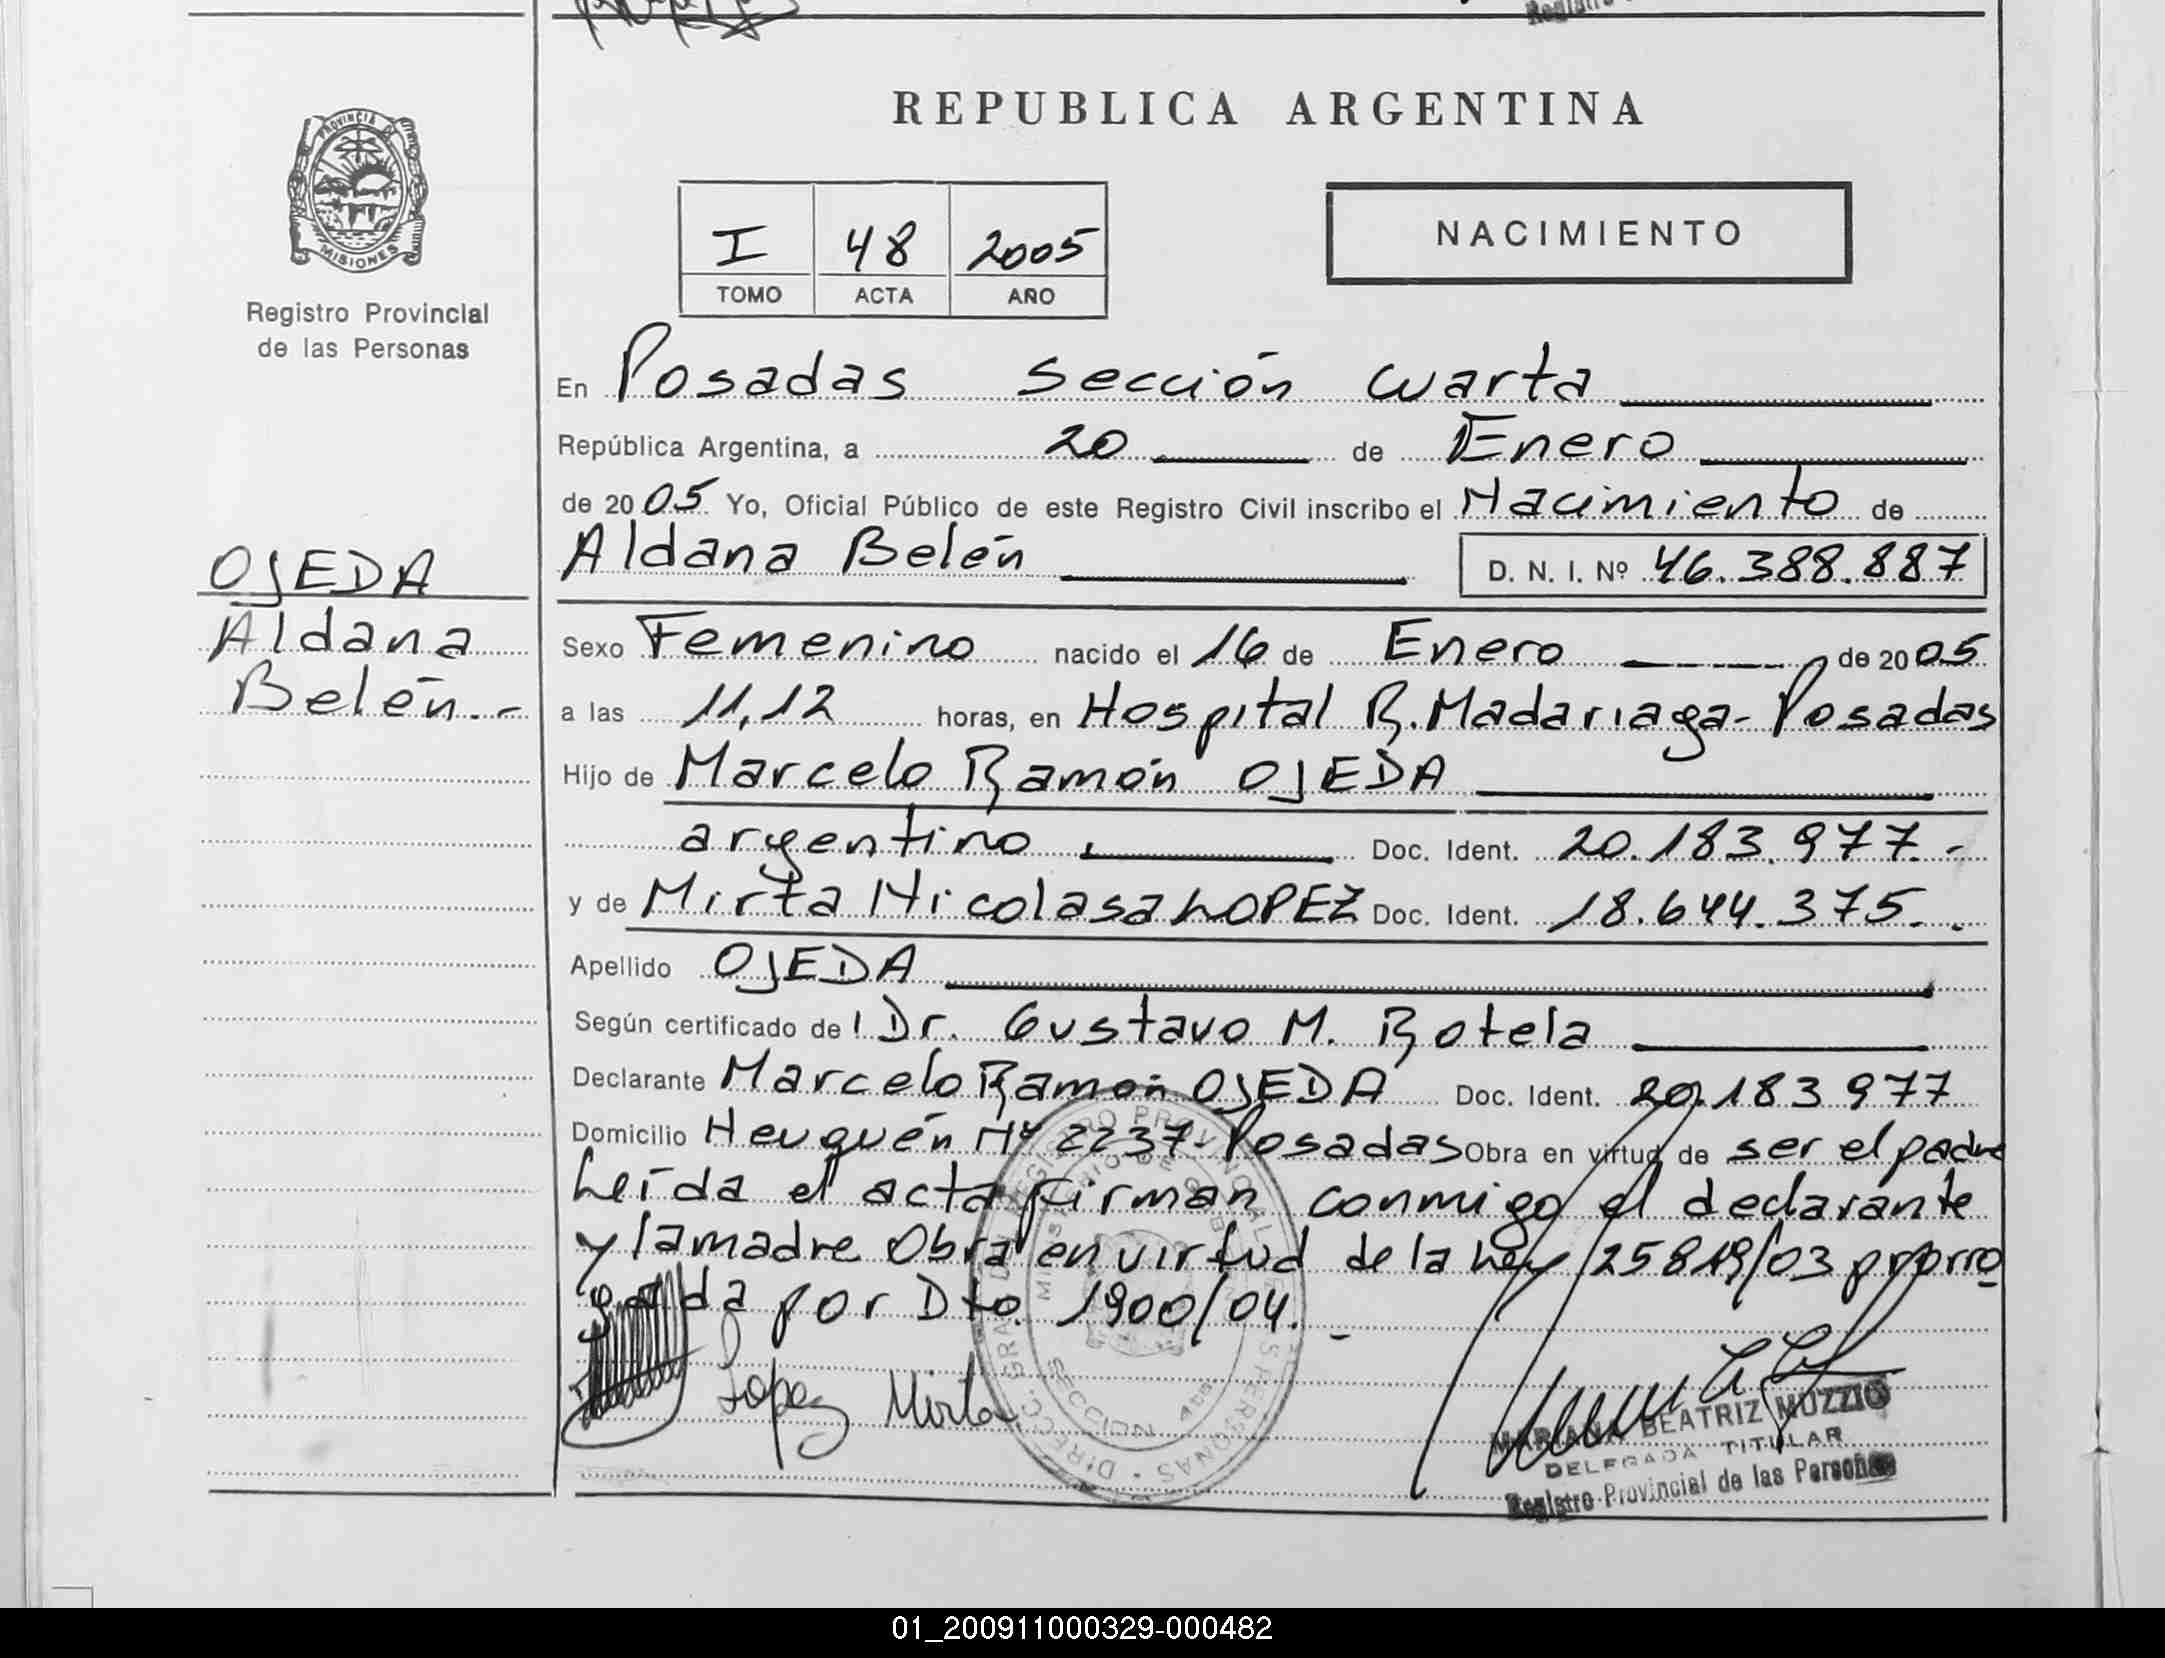 REPUBLICA ARGENTINA
PROVINCIA DE
MISIONES
Registro Provincial
de las Personas
I 48 2005
TOMO ACTA AÑO
NACIMIENTO
En Posadas Sección Cuarta
República Argentina, a 20 de Enero
de 2005 Yo, Oficial Público de este Registro Civil inscribo el Nacimiento de
Aldana Belén D. N. I. Nº 46.388.887
OJEDA
Aldana
Belén.-
Sexo Femenino nacido el 16 de Enero de 2005
a las 11,12 horas, en Hospital R. Madariaga - Posadas
Hijo de Marcelo Ramón OJEDA
argentino Doc. Ident. 20.183.977.-
y de Mirta Nicolasa LOPEZ Doc. Ident. 18.644.375.-
Apellido OJEDA
Según certificado de l Dr. Gustavo M. Rotela
Declarante Marcelo Ramón OJEDA Doc. Ident. 20.183977
Domicilio Neuquén Nº 2237- Posadas Obra en virtud de ser el padre
Leída el acta firman conmigo el declarante
y la madre Obra en virtud de la Ley 25819/03 prorro
gada por Dto. 1900/04.-
Lopez Mirta
DIRECC. GRAL DEL REGISTRO PROVINCIAL DE LAS PERSONAS
MINISTERIO DE GOBIERNO
SECCION 4ta
MARIANA BEATRIZ MUZZIO
DELEGADA TITULAR
Registro Provincial de las Personas
01_200911000329-000482